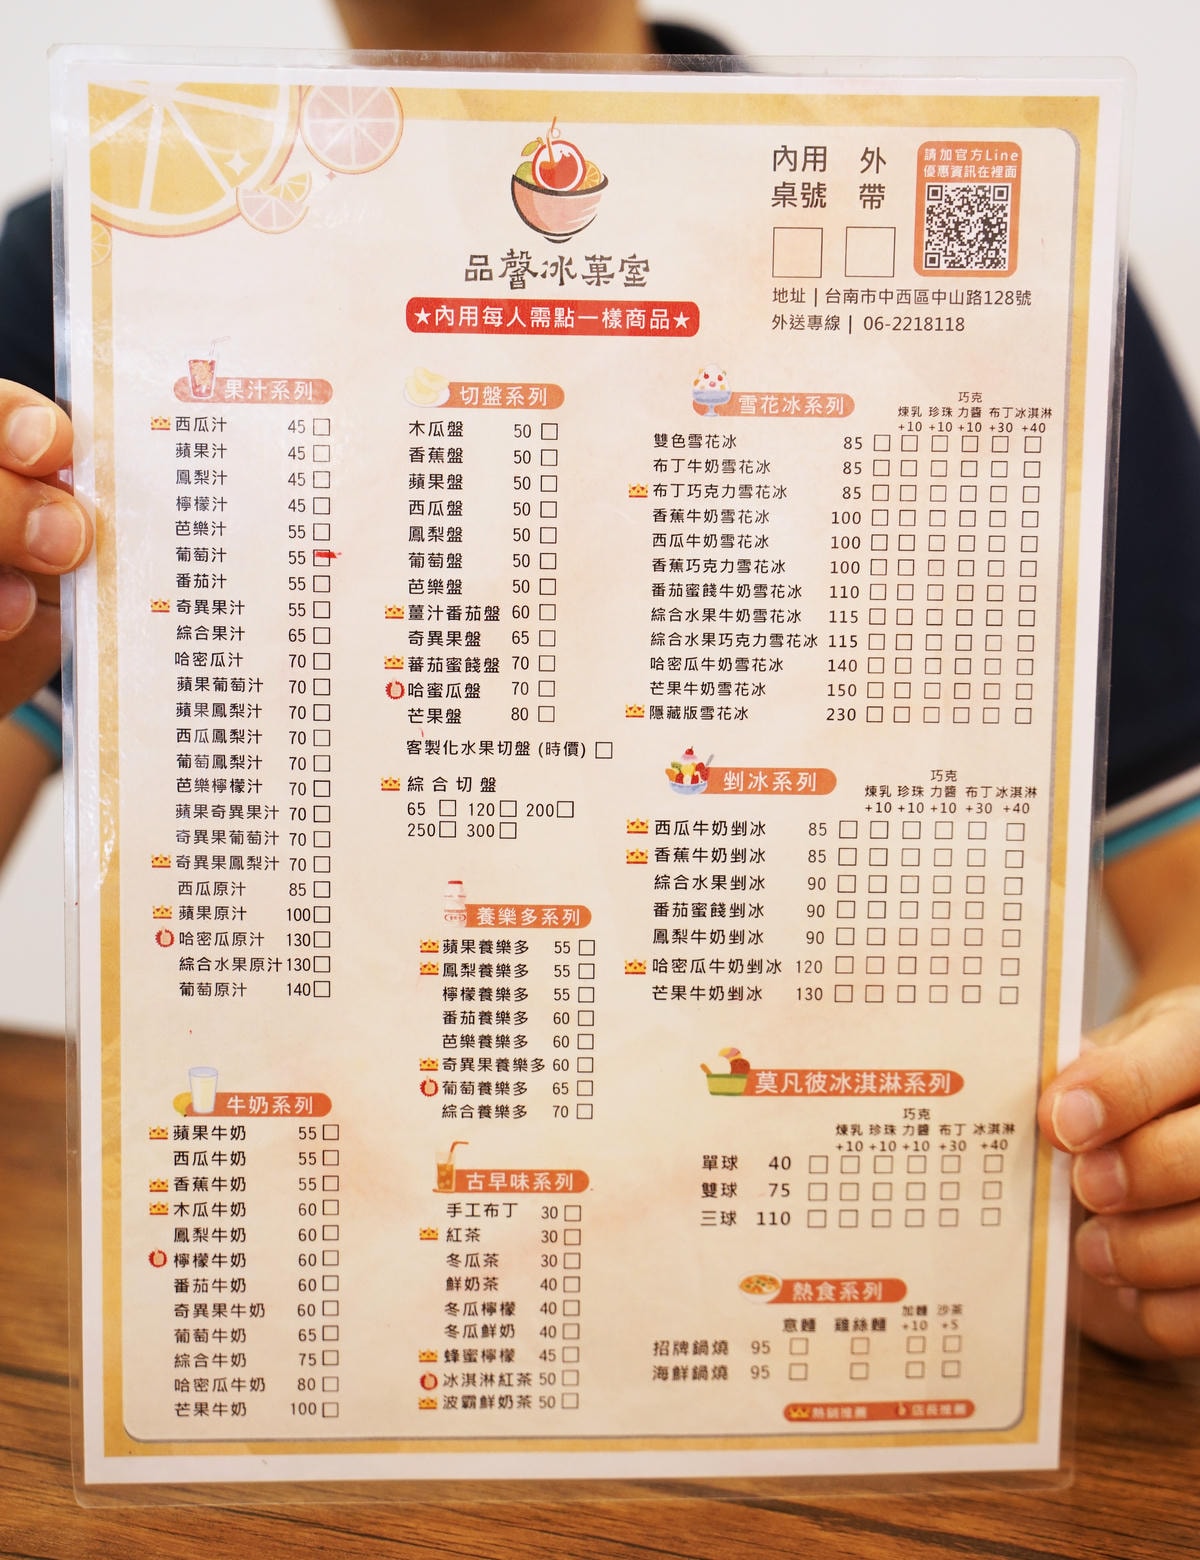 品馨冰菓室
★內用每人需點一樣商品★
內用 外
桌號 帶
請加官方Line
優惠資訊在裡面
地址 | 台南市中西區中山路128號
外送專線 | 06-2218118
果汁系列
西瓜汁 45
蘋果汁 45
鳳梨汁 45
檸檬汁 45
芭樂汁 55
葡萄汁 55
番茄汁 55
奇異果汁 55
綜合果汁 65
哈密瓜汁 70
蘋果葡萄汁 70
蘋果鳳梨汁 70
西瓜鳳梨汁 70
葡萄鳳梨汁 70
芭樂檸檬汁 70
蘋果奇異果汁 70
奇異果葡萄汁 70
奇異果鳳梨汁 70
西瓜原汁 85
蘋果原汁 100
哈密瓜原汁 130
綜合水果原汁 130
葡萄原汁 140
牛奶系列
蘋果牛奶 55
西瓜牛奶 55
香蕉牛奶 55
木瓜牛奶 60
鳳梨牛奶 60
檸檬牛奶 60
番茄牛奶 60
奇異果牛奶 60
葡萄牛奶 65
綜合牛奶 75
哈密瓜牛奶 80
芒果牛奶 100
切盤系列
木瓜盤 50
香蕉盤 50
蘋果盤 50
西瓜盤 50
鳳梨盤 50
葡萄盤 50
芭樂盤 50
薑汁番茄盤 60
奇異果盤 65
蕃茄蜜餞盤 70
哈蜜瓜盤 70
芒果盤 80
客製化水果切盤 (時價)
綜合切盤
65 120 200
250 300
養樂多系列
蘋果養樂多 55
鳳梨養樂多 55
檸檬養樂多 55
番茄養樂多 60
芭樂養樂多 60
奇異果養樂多 60
葡萄養樂多 65
綜合養樂多 70
古早味系列
手工布丁 30
紅茶 30
冬瓜茶 30
鮮奶茶 40
冬瓜檸檬 40
冬瓜鮮奶 40
蜂蜜檸檬 45
冰淇淋紅茶 50
波霸鮮奶茶 50
雪花冰系列
巧克
煉乳 珍珠 力醬 布丁 冰淇淋
+10 +10 +10 +30 +40
雙色雪花冰 85
布丁牛奶雪花冰 85
布丁巧克力雪花冰 85
香蕉牛奶雪花冰 100
西瓜牛奶雪花冰 100
香蕉巧克力雪花冰 100
番茄蜜餞牛奶雪花冰 110
綜合水果牛奶雪花冰 115
綜合水果巧克力雪花冰 115
哈密瓜牛奶雪花冰 140
芒果牛奶雪花冰 150
隱藏版雪花冰 230
剉冰系列
巧克
煉乳 珍珠 力醬 布丁 冰淇淋
+10 +10 +10 +30 +40
西瓜牛奶剉冰 85
香蕉牛奶剉冰 85
綜合水果剉冰 90
番茄蜜餞剉冰 90
鳳梨牛奶剉冰 90
哈密瓜牛奶剉冰 120
芒果牛奶剉冰 130
莫凡彼冰淇淋系列
巧克
煉乳 珍珠 力醬 布丁 冰淇淋
+10 +10 +10 +30 +40
單球 40
雙球 75
三球 110
熱食系列
加麵 沙茶
意麵 雞絲麵 +10 +5
招牌鍋燒 95
海鮮鍋燒 95
熱銷推薦 店長推薦